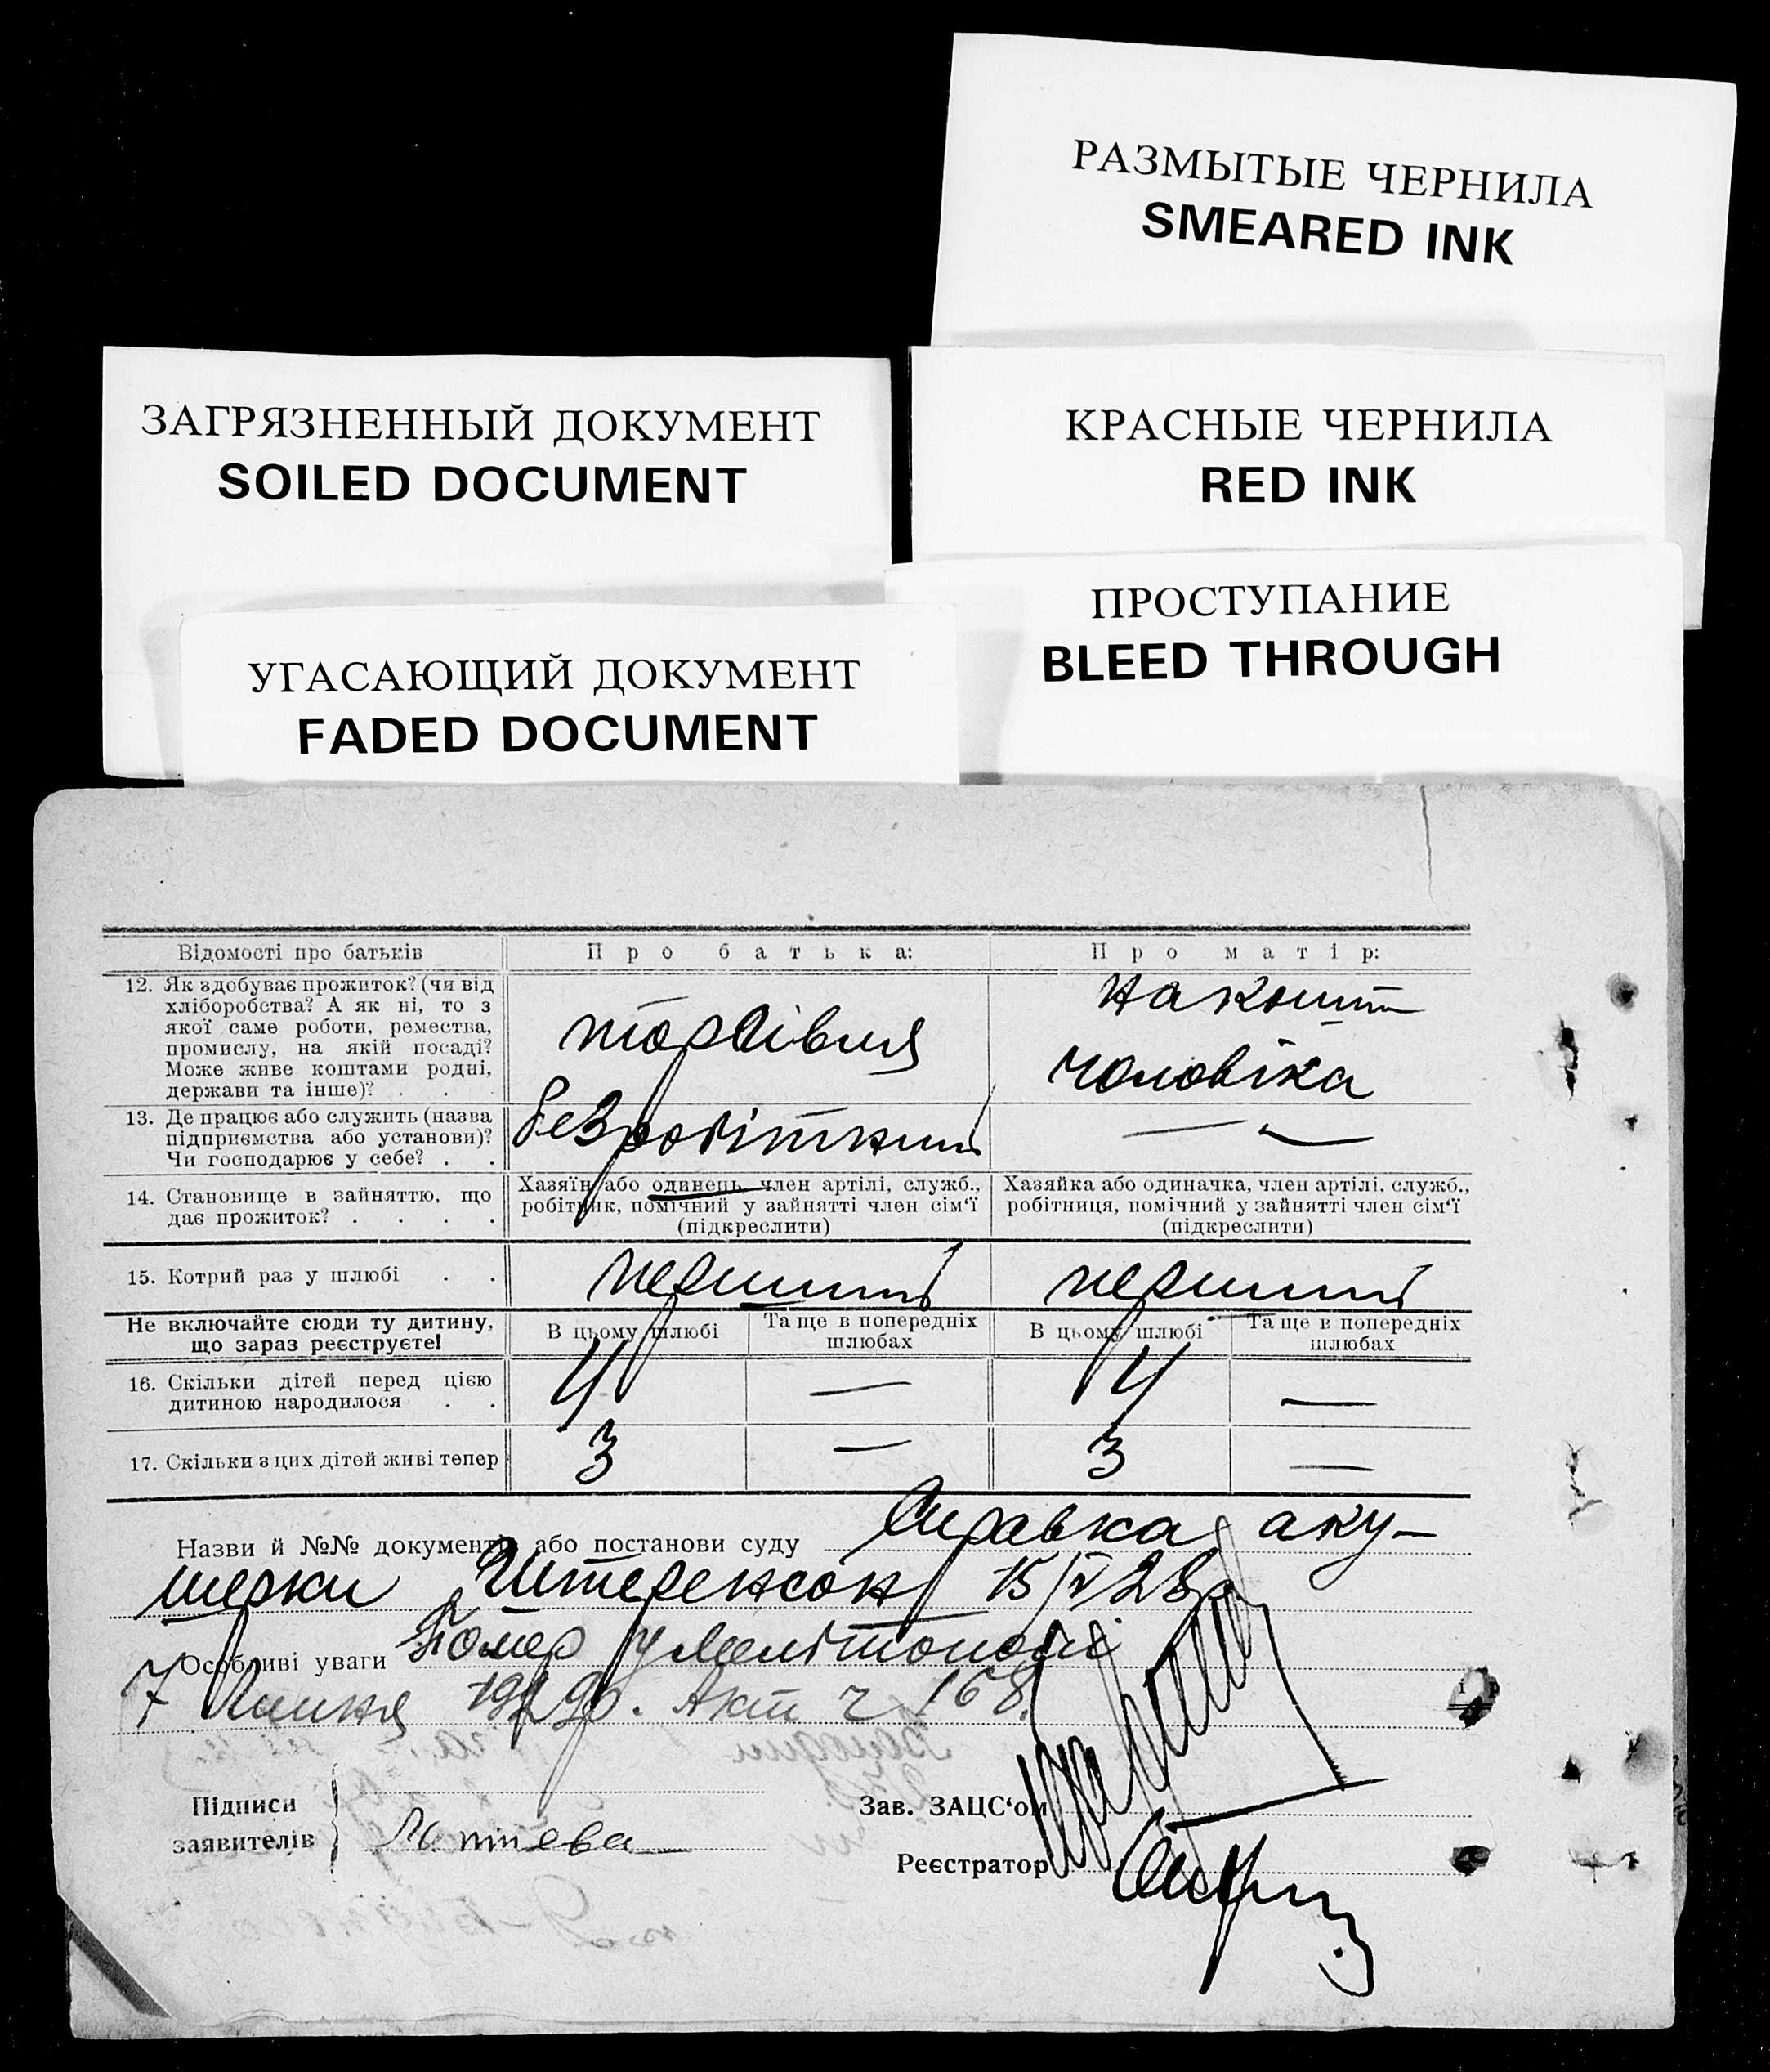 РАЗМЫТЫЕ ЧЕРНИЛА
SMEARED INK
ЗАГРЯЗНЕННЫЙ ДОКУМЕНТ
SOILED DOCUMENT
КРАСНЫЕ ЧЕРНИЛА
RED INK
ПРОСТУПАНИЕ
BLEED THROUGH
УГАСАЮЩИЙ ДОКУМЕНТ
FADED DOCUMENT
Відомості про батьків
Про батька:
Про матір:
12. Як здобуває прожиток? (чи від
хліборобства? А як ні, то з
якої саме роботи, ремества,
промислу, на якій посаді?
Може живе коштами родні,
держави та інше)? . .
торгівля
на кошт
чоловіка
13. Де працює або служить (назва
підприємства або установи)?
Чи господарює у себе? . .
безробітний
— —
14. Становище в зайняттю, що
дає прожиток? . . . .
Хазяїн або одинець, член артілі, служб.,
робітник, помічний у зайнятті член сім'ї
(підкреслити)
Хазяйка або одиначка, член артілі, служб.,
робітниця, помічний у зайнятті член сім'ї
(підкреслити)
15. Котрий раз у шлюбі . .
перший
перший
Не включайте сюди ту дитину,
що зараз реєструєте!
В цьому шлюбі
Та ще в попередніх
шлюбах
В цьому шлюбі
Та ще в попередніх
шлюбах
16. Скільки дітей перед цією
дитиною народилося . .
4 — 4 —
17. Скільки з цих дітей живі тепер
3 — 3 —
Назви й №№ документів або постанови суду Справка аку-
шерки Штеренсон 15/V 28р
Особливі уваги Помер у Мелітополі
7 Липня 1929р. Акт ч 168.
Підписи
заявителів
Зав. ЗАЦС'ом
Реєстратор